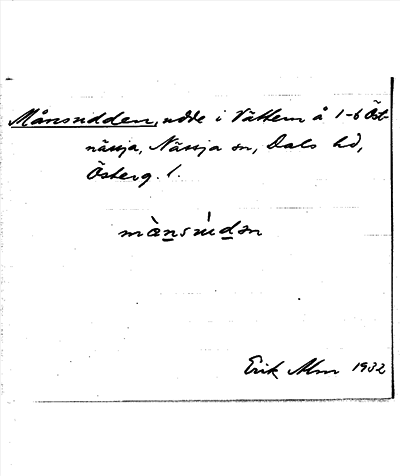 Månsudden, udde i Vättern å 1-6 Öst-
nässja, Nässja sn, Dals hd,
Österg. l.
mànsúdən
Erik Alm 1932